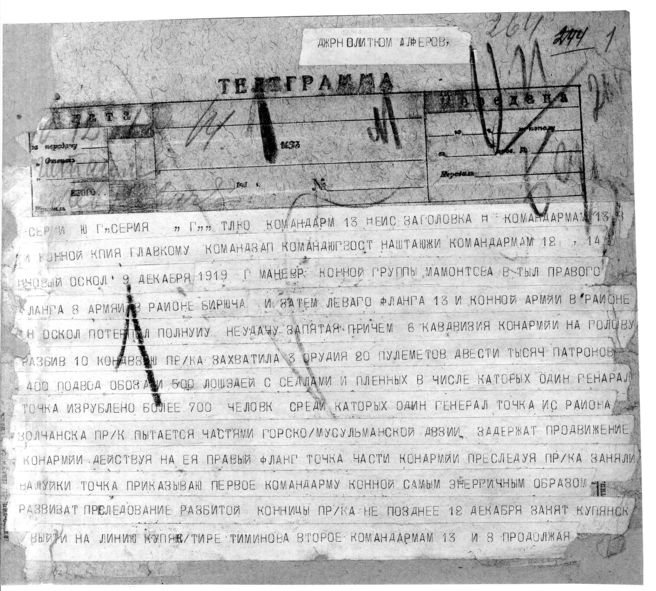 ДЖРН ОЛИТКОМ АЛФЕРОВ,
264 244 1
ТЕЛЕГРАММА
Передана
ИТОГО №
СЕРИИ Ю Г"СЕРИЯ " Г"" ТЛКО КОМАНДАРМ 13 НЕИС ЗАГОЛОВКА Н КОМАНДАРМАМ 13 8
И КОННОЙ КПИЯ ГЛАВКОМУ КОМАНДЗАП КОМАНДЮГВОСТ НАШТАЮЖИ КОМАНДАРМАМ 12 , 14
НОВЫЙ ОСКОЛ 9 ДЕКАБРЯ 1919 Г МАНЕВР КОННОЙ ГРУППЫ МАМОНТОВА В ТЫЛ ПРАВОГО
ФЛАНГА 8 АРМИИ В РАЙОНЕ БИРЮЧА И ЗАТЕМ ЛЕВАГО ФЛАНГА 13 И КОННОЙ АРМИИ В РАЙОНЕ
Н ОСКОЛ ПОТЕРПАЛ ПОЛНУИУ НЕУДАЧУ ЗАПЯТАЯ ПРИЧЕМ 6 КАВДИВИЗИЯ КОНАРМИИ НА ГОЛОВУ
РАЗБИВ 10 ПР/КА ЗАХВАТИЛА 3 ОРУДИЯ 20 ПУЛЕМЕТОВ ДВЕСТИ ТЫСЯЧ ПАТРОНОВ
400 ПОДВОД ОБОЗА И 500 ЛОШЗДЕЙ С СЕДЛАМИ И ПЛЕННЫХ В ЧИСЛЕ КАТОРЫХ ОДИН ГЕНАРАЛ
ТОЧКА ИЗРУБЛЕНО БОЛЕЕ 700 ЧЕЛОВК СРЕДИ КАТОРЫХ ОДИН ГЕНЕРАЛ ТОЧКА ИС РАЙОНА
ВОЛЧАНСКА ПР/К ПЫТАЕТСЯ ЧАСТЯМИ ГОРСКО/МУСУЛЬМАНСКОЙ ДВЗИИ ЗАДЕРЖАТ ПРОДВИЖЕНИЕ
КОНАРМИИ ДЕЙСТВУЯ НА ЕЯ ПРАВЫЙ ФЛАНГ ТОЧКА ЧАСТИ КОНАРМИИ ПРЕСЛЕДУЯ ПР/КА ЗАНЯЛИ
ВАЛУЙКИ ТОЧКА ПРИКАЗЫВАЮ ПЕРВОЕ КОМАНДАРМУ КОННОЙ САМЫМ ЭНЕРГИЧНЫМ ОБРАЗОМ
РАЗВИВАТ ПРЕСЛЕДОВАНИЕ РАЗБИТОЙ КОННИЦЫ ПР/КА НЕ ПОЗДНЕЕ 12 ДЕКАБРЯ ЗАНЯТ КУПЯНСК
ВЫЙТИ НА ЛИНИЮ КУПЯК/ТИРЕ ТИМИНОВА ВТОРОЕ КОМАНДАРМАМ 13 И 8 ПРОДОЛЖАЯ